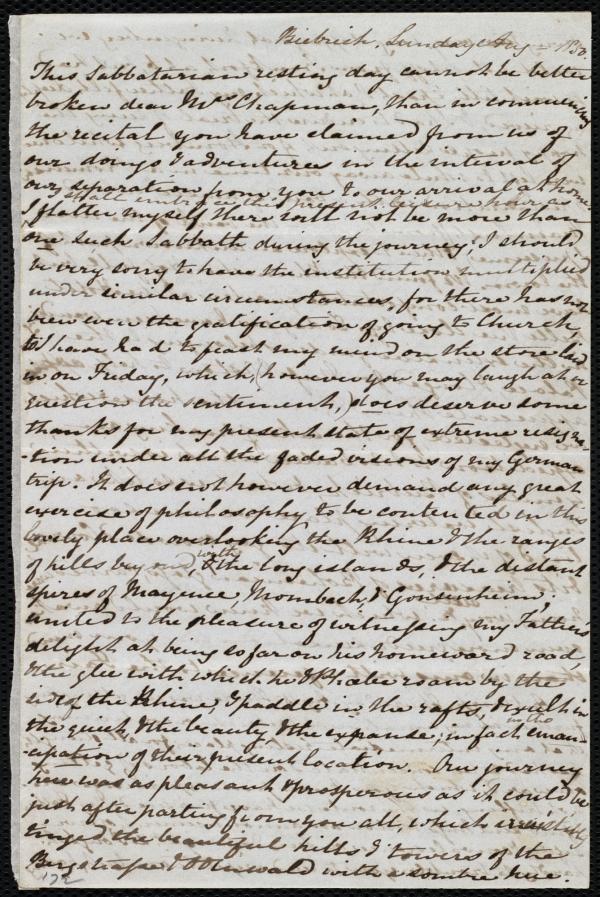 Biebrich, Sunday Aug
This Sabbatarian resting day cannot be better
broken dear Mrs Chapman, than in commencing
the recital you have claimed from us of
our doings & adventures in the interval of
our separation from you to our arrival at home.
I shall embrace this present leisure hour as
I flatter myself there will not be more than
one such Sabbath during the journey; I should
be very sorry to have the institution multiplied
under similar circumstances, for there has not
been even the gratification of going to Church,
& I have had to feast my mind on the store laid
in on Friday, which, (however you may laugh at or
question the sentiment,) does deserve some
thanks for my present state of extreme resigna-
-tion under all the faded visions of my German
trip. It does not however demand any great
exercise of philosophy to be contented in this
lovely place overlooking the Rhine & the ranges
of hills beyond, with the long islands, & the distant
spires of Mayence, Mombach, & Gonsenheim;
united to the pleasure of witnessing my Father's
delight at being so far on his homeward road,
& the glee with which he & Phœbe roam by the
side of the Rhine, & paddle in the rafts, & exult in
the quick, & the beauty, & the expanse; in fact in the eman-
-cipation of their present location. Our journey
here was as pleasant & prosperous as it could be
just after parting from you all, which irresistibly
tinged the beautiful hills & towers of the
Bergstrasse & Odenwald with a sombre hue.